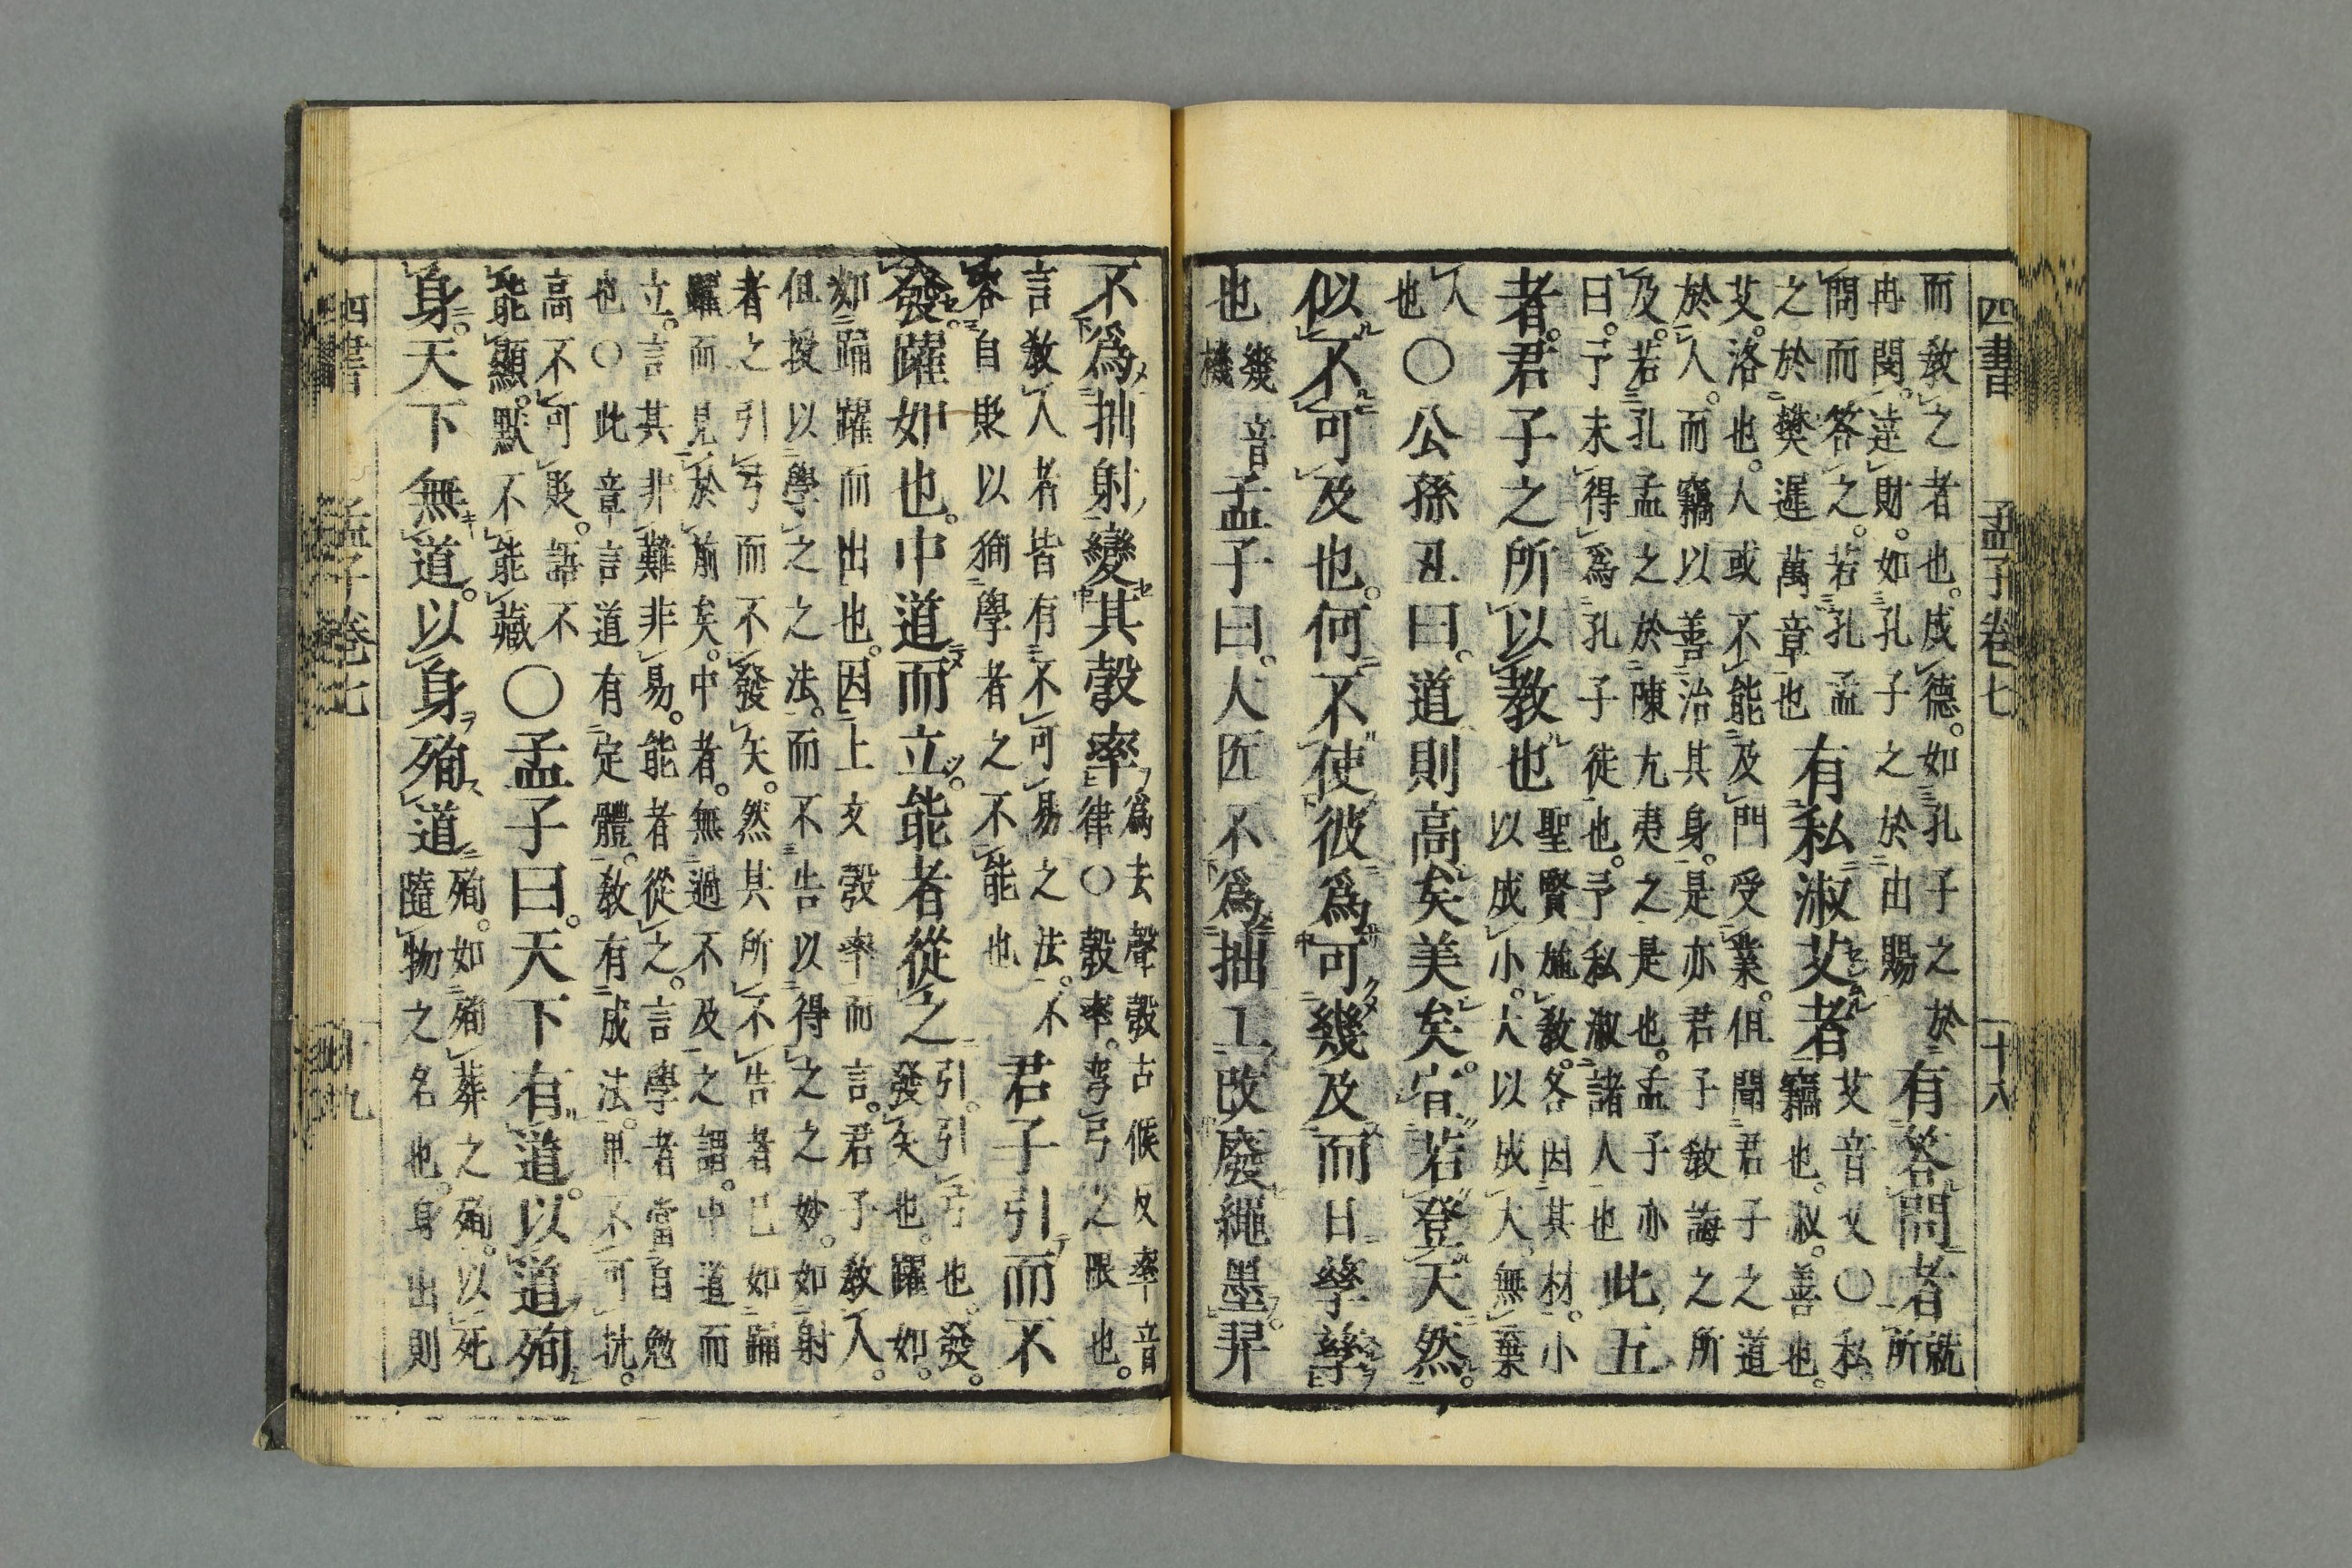 四書 孟子卷七 十八
而敎之者也。成德。如孔子之於
冉閔。達財。如孔子之於由賜
有答問者
就
所
問而答之。若孔孟
之於樊遲萬章也
有私淑艾者
艾音乂○私
竊也。淑。善也。
艾。洛也。人或不能及門受業。但聞君子之道
於人。而竊以善治其身。是亦君子敎誨之所
及。若孔孟之於陳亢夷之是也。孟子亦
曰。予未得爲孔子徒也。予私淑諸人也
此五
者。君子之所以教也
聖賢施敎。各因其材。小
以成小。大以成大。無棄
人
也
○公孫丑曰。道則高矣美矣。宜若登天然。
似不可及也。何不使彼爲可幾及而日孳孳
也
幾音
機
孟子曰。大匠不爲拙工改廢繩墨。羿
不爲拙射變其彀率
爲去聲彀古候反率音
律○彀率。彎弓之限也。
言敎人者皆有不可易之法。不
容自貶以徇學者之不能也
君子引而不
發。躍如也。中道而立。能者從之
引。引弓也。發。
發矢也。躍如。
如踊躍而出也。因上文彀率而言。君子敎人。
但授以學之之法。而不告以得之之妙。如射
者之引弓而不發矢。然其所不告者已如踊
躍而見於前矣。中者。無過不及之謂。中道而
立。言其非難非易。能者從之。言學者當自勉
也○此章言道有定體。敎有成法。卑不可抗。
高不可貶。語不
能顯。默不能藏
○孟子曰。天下有道。以道殉
身。天下無道。以身殉道
殉。如殉葬之殉。以死
隨物之名也。身出則
四書 孟子卷七 十九